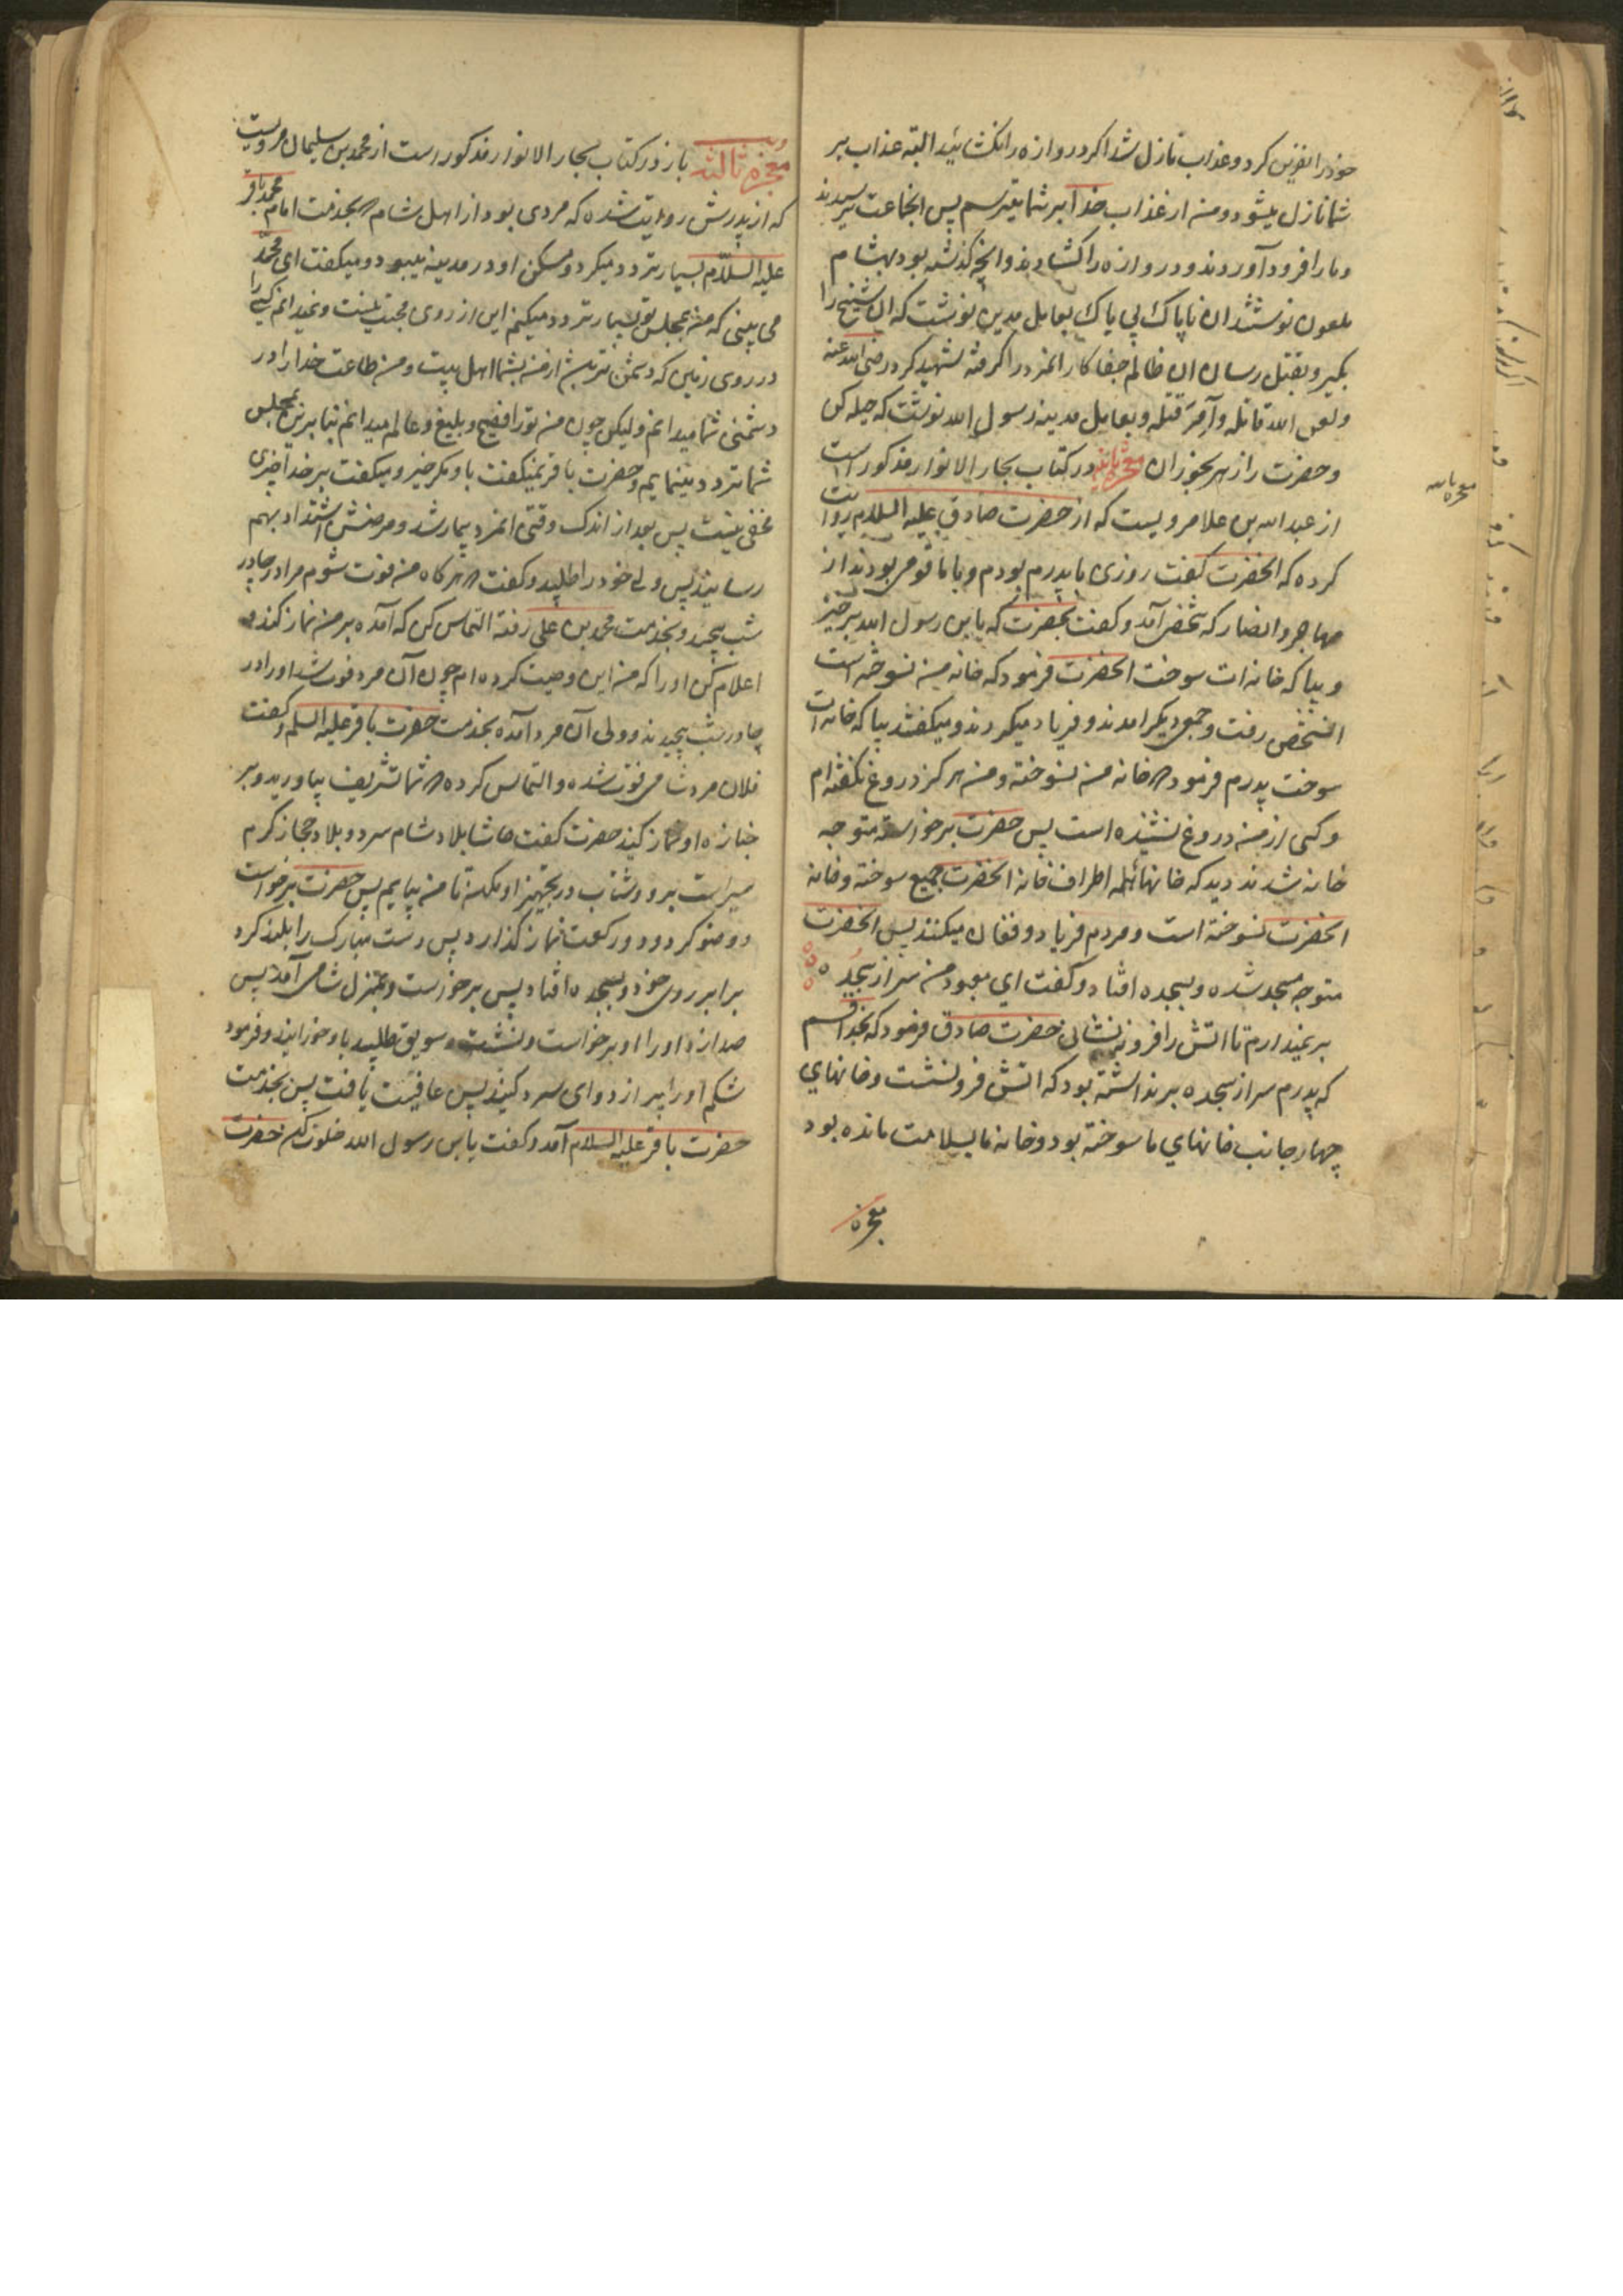 خود را نفرین کرد و عذاب نازل شد اگر دروازه را نکشائید البته عذاب بر
شما نازل میشود و من از عذاب خدا بر شما میترسم پس انجماعت ترسیدند
و ما را فرود آوردند و دروازه را کشادند و انچه کذشته بود بهشام
ملعون نوشتند ان ناپاک بی باک بعامل مدین نوشت که ان شیخ را
بکیر و بقتل رسان ان ظالم جفا کار انمرد را کرفته شهید کرد رضی الله عنه
و لعن الله قاتله و آمر قتله و بعامل مدینه رسول الله نوشت که حیله کن
و حضرت را زهر بخوران معجزه ثانیه در کتاب بحار الانوار مذکور است
از عبد الله بن علا مرویست که از حضرت صادق علیه السلام روایت
کرده که انحضرت کفت روزی با پدرم بودم و با ما قومی بودند از
مهاجر و انصار که شخصی آمد و کفت بحضرت که یابن رسول الله برخیز
و بیا که خانه ات سوخت انحضرت فرمود که خانه من نسوخته است
انشخص رفت و جمعی دیکر امدند و فریاد میکردند و میکفتند بیا که خانه ات
سوخت پدرم فرمود که خانه من نسوخته و من هرکز دروغ نکفته ام
و کسی از من دروغ نشنیده است پس حضرت برخواسته متوجه
خانه شدند دید که خانهائ اطراف خانه انحضرت جمیع سوخته و خانه
انحضرت نسوخته است و مردم فریاد و فغان میکنند پس انحضرت
متوجه مسجد شده و بسجده افتاد و کفت ای معبود من سر از سجده
بر نمیدارم تا اتش را فرو ننشانی حضرت صادق فرمود که بخدا قسم
که پدرم سر از سجده بر نداشته بود که اتش فرو نشست و خانهای
چهار جانب خانهای ما سوخته بود و خانه ما بسلامت مانده بود
معجزه
معجزه ثانیه
معجزه ثالثه باز در کتاب بحار الانوار مذکور است از محمد بن سلیمان مرویست
که از پدرش روایت شده که مردی بود از اهل شام که بخدمت امام محمد باقر
علیه السلام بسیار تردد میکرد و مسکن او در مدینه میبود و میکفت ای محمد
می بینی که من بمجلس تو بسیار تردد میکنم این از روی محبت نیست و نمیدانم کسی را
در روی زمین که دشمن تر باشد از من بشما اهل بیت و من طاعت خدا را در
دشمنی شما میدانم و لیکن چون من تو را فصیح و بلیغ و عالم میدانم بنابرین بمجلس
شما تردد مینمایم و حضرت باقر نمیکفت باو مکر خیر و میکفت بر خدا چیزی
مخفی نیست پس بعد از اندک وقتی انمرد بیمار شد و مرضش اشتداد بهم
رسانید پس ولی خود را طلبید و کفت که هرکاه من فوت شوم مرا در چادر
شب بپیچید و بخدمت محمد بن علی رفته التماس کن که آمده بر من نماز کند و
اعلام کن او را که من این وصیت کرده ام چون آن مرد فوت شد او را در
چادر شب پیچیدند و ولی آن مرد آمده بخدمت حضرت باقر علیه السلم و کفت
فلان مرد شامی فوت شده و التماس کرده که شما تشریف بیاورید و بر
جنازه او نماز کنید حضرت کفت حاشا بلاد شام سرد و بلاد حجاز کرم
سیر است برو و شتاب در تجهیز او مکن تا من بیایم پس حضرت برخواست
و وضو کرد و دو رکعت نماز کذارد پس دست مبارک را بلند کرد
برابر روی خود و بسجده افتاد پس برخواست و بمنزل شامی آمد پس
صدا زد او را او برخواست و نشست و سویق طلبید باو خورانید و فرمود
شکم او را پر از دوای سرد کنید پس عافیت یافت پس بخدمت
حضرت باقر علیه السلام آمد و کفت یابن رسول الله خلوت کن حضرت